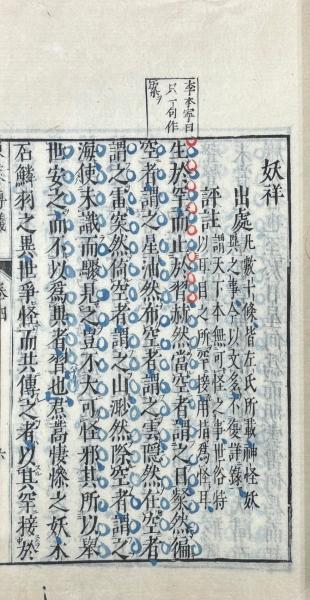 李本寧曰
只一句作
案
妖祥
出處 凡數十條皆左氏所載神怪妖
異之事今以文多不復詳錄
評註 謂天下本無可怪之事世俗特
以耳目之所罕接用指爲怪耳
生於罕而止於習赫然當空者謂之日粲然徧
空者謂之星油然布空者謂之雲隱然在空者
謂之雷突然倚空者謂之山渺然際空者謂之
海使未識而驟見之豈不大可怪邪其所以舉
世安之而不以爲異者習也焄蒿悽慘之妖木
石鱗羽之異世爭怪而共傳之者以其罕接於